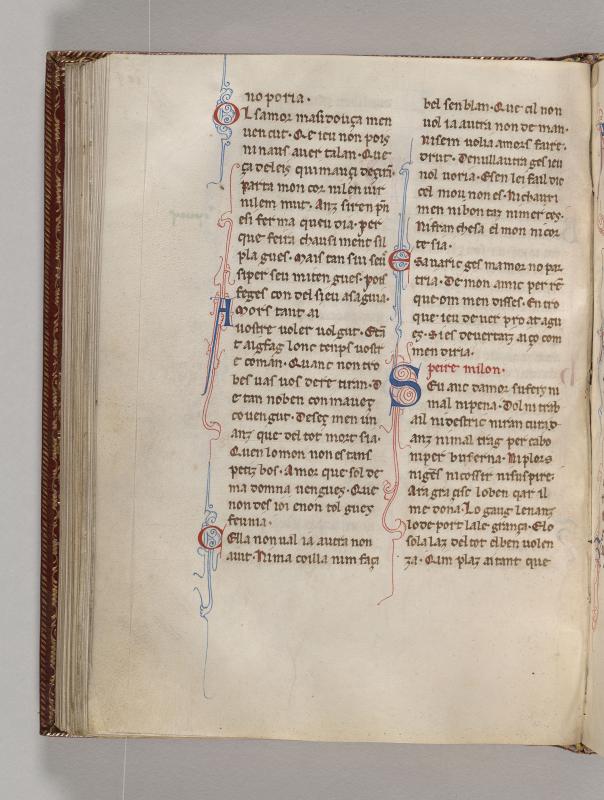 no poria.
OL samor masi douça men
uencut. Qe ieu non pois
ni naus auer talan. Que
ça deleis qui mauçi deziri.
parta mon cor nilen uir
nilem mut. Anz siren pn
esi fer ma queu dia. per
que feira chausiment sil
pla gues. Mais tan sui seu
siper seu miten gues. pois
feges con del sieu asa guia.
AMors tant ai
uostre uoler uolgut. Et
t aigfag lonc temps uostr
e coman. Quanc non tro
bes uas uos dere tiran. D
e tan noben con mauez
co uengut. Desez men un
anz que del tot mort sia.
Quen lomon non es tans
petiz bos. Amor que sol de
ma domna uengues. Que
non des ioi enon tol gues
feunia.
CElla non ual ia autra non
aut. Ni ma coilla nim faça
bel sen blan. Que cil non
uol ia autra non de man.
nisem uolia amors faire.
drut. Denullautra ges ieu
nol uoria. E sen lei fail die
cel mou non es. Ni chauri
men ni bon taz nimer ces.
Ni fran chesa el mon ni cor
te sia.
ESauaric ges mamor no par
tria. De mon amic per re
que om men disses. En tro
que ieu de uer pro at agu
es. Si es deuertaz aiço com
men diria.
peire milon.
SEu anc damor sufery ni
mal ni pena. Dol ni trab
ail ni destric ni ran cura.
anz ni mal trag per cabo
ni per buferna. Ni plors
niges ni cossir ni sus pire.
Ara gra çisc lo ben qar il
me dona. Lo gaug lenanz
lo de port lale grança. E lo
sola laz del tot el ben uolen
za. Qim plaz aitant que